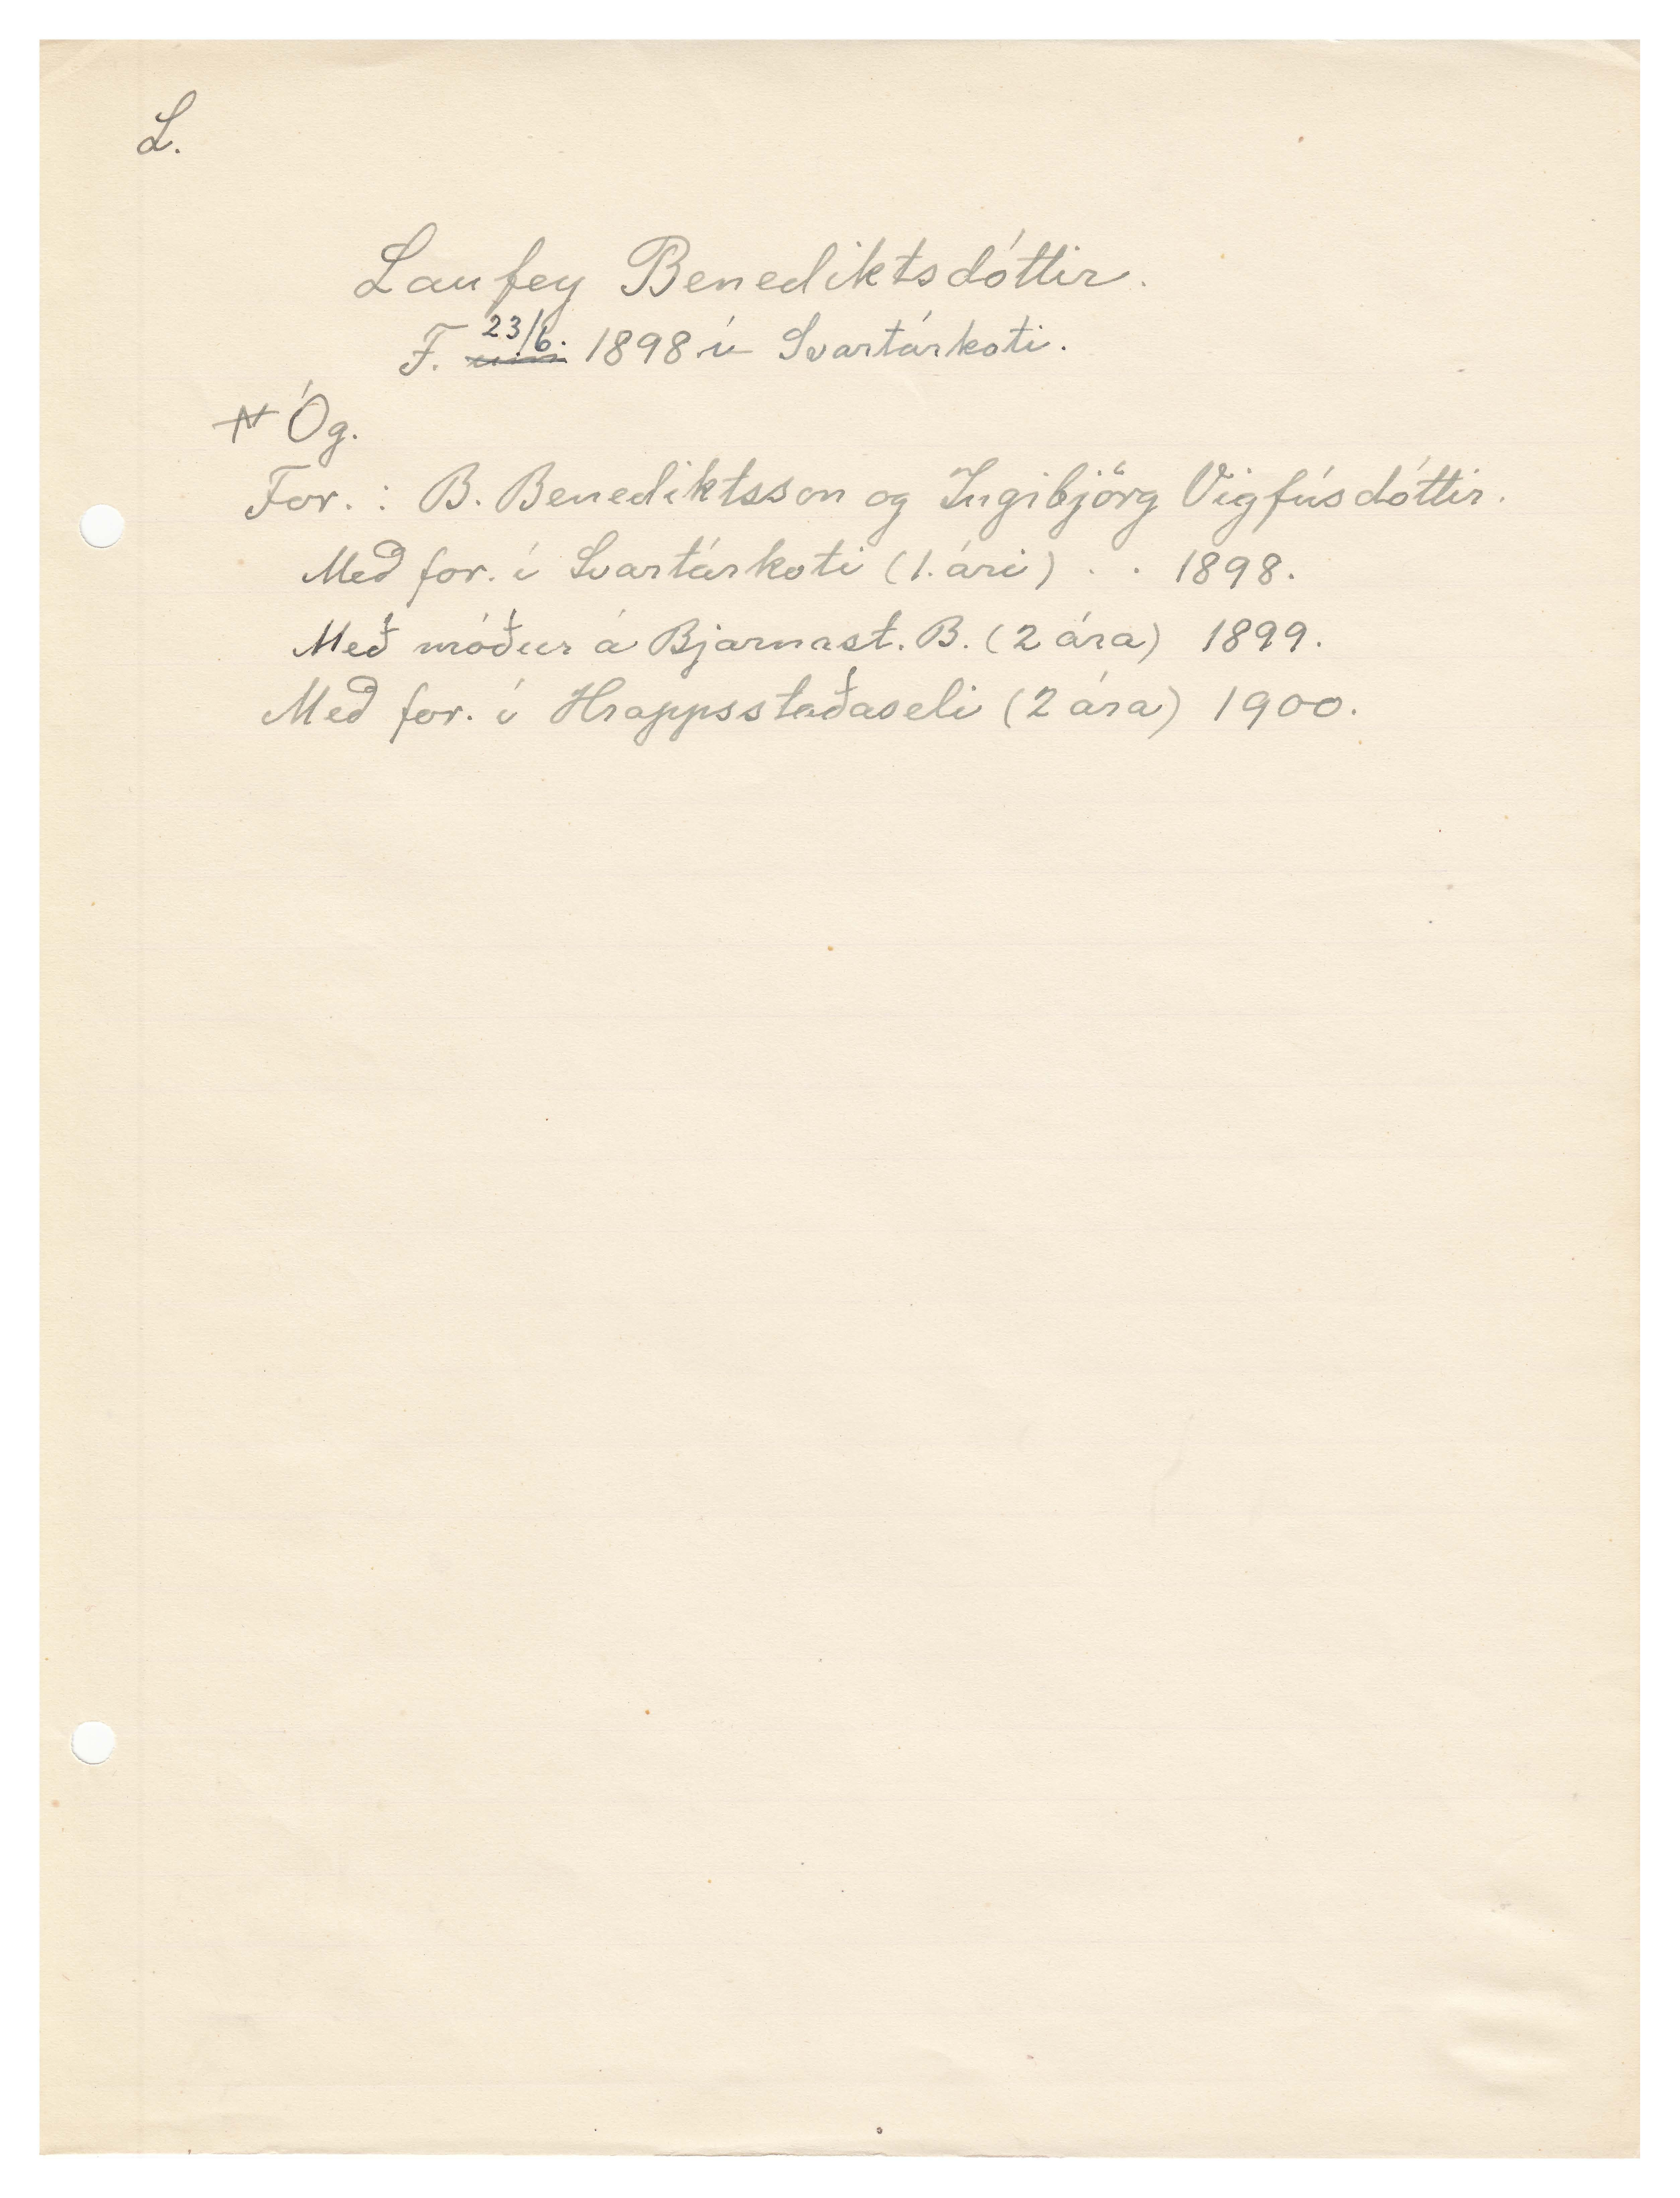 L.
Laufey Benediktsdóttir.
F. 23/6. 1898 í Svartárkoti.
Óg.
For.: B. Benediktsson og Ingibjörg Vigfúsdóttir.
Með for. í Svartárkoti (1. ári) . . 1898.
Með móður á Bjarnast. B. (2 ára) 1899.
Með for. í Hrappsstaðaseli (2 ára) 1900.